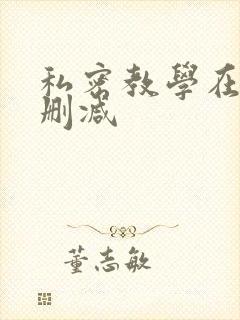 私密教學在
删减
董志敏